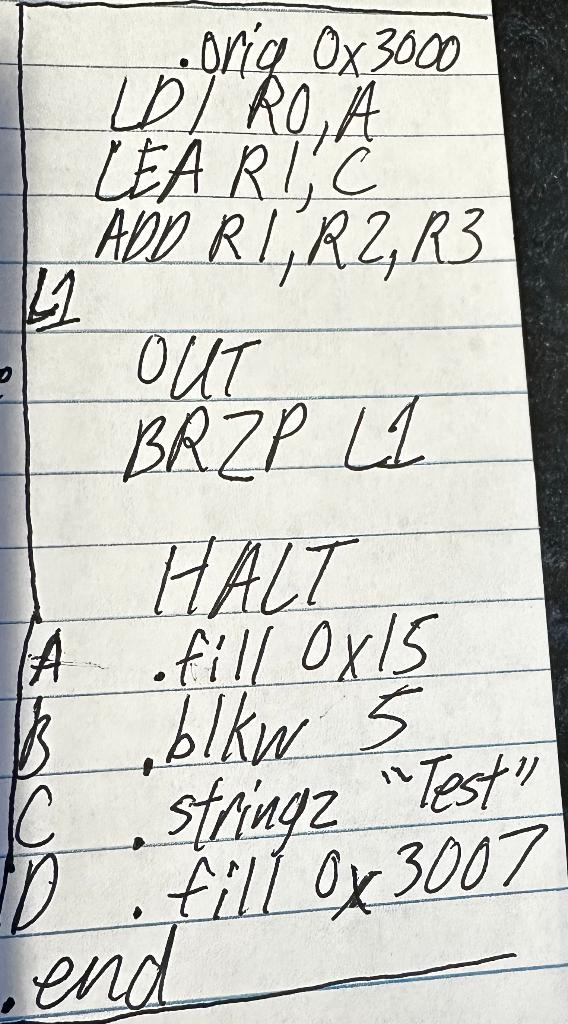 .orig 0x3000
LDI R0, A
LEA R1, C
ADD R1, R2, R3
L1
OUT
BRZP L1
HALT
A .fill 0x15
B .blkw 5
C .stringz "Test"
D .fill 0x3007
.end